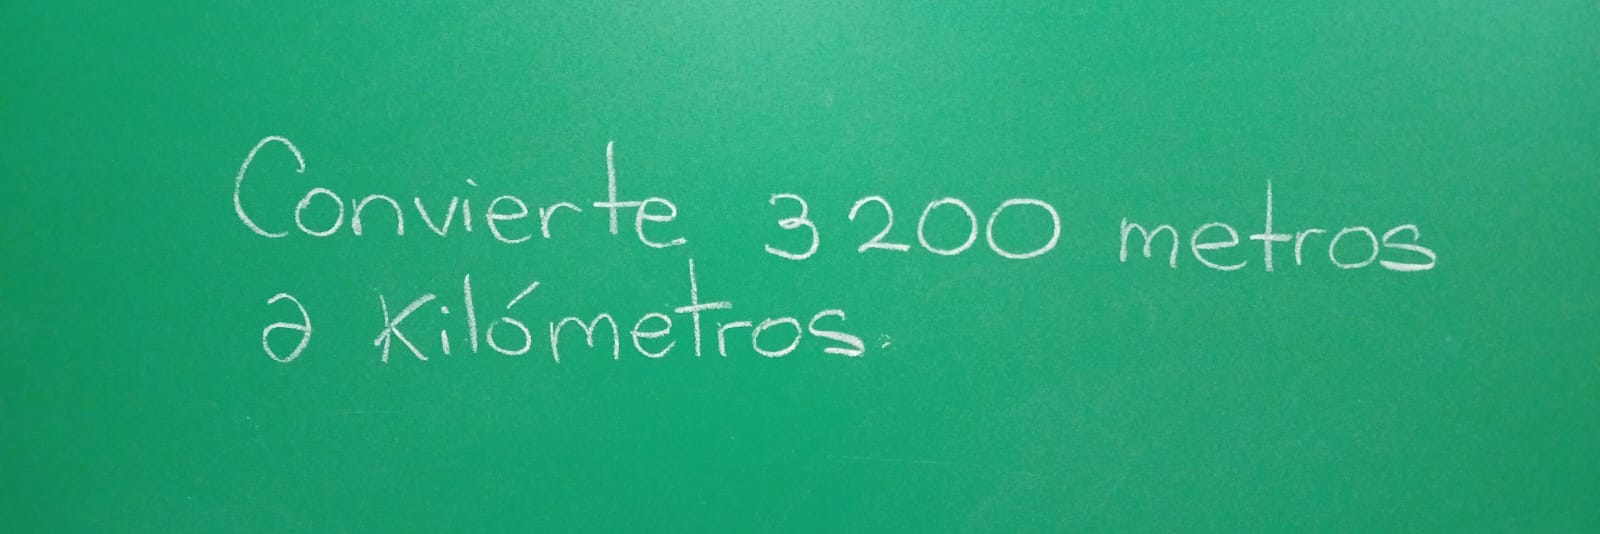 Convierte 3200 metros
a Kilómetros.